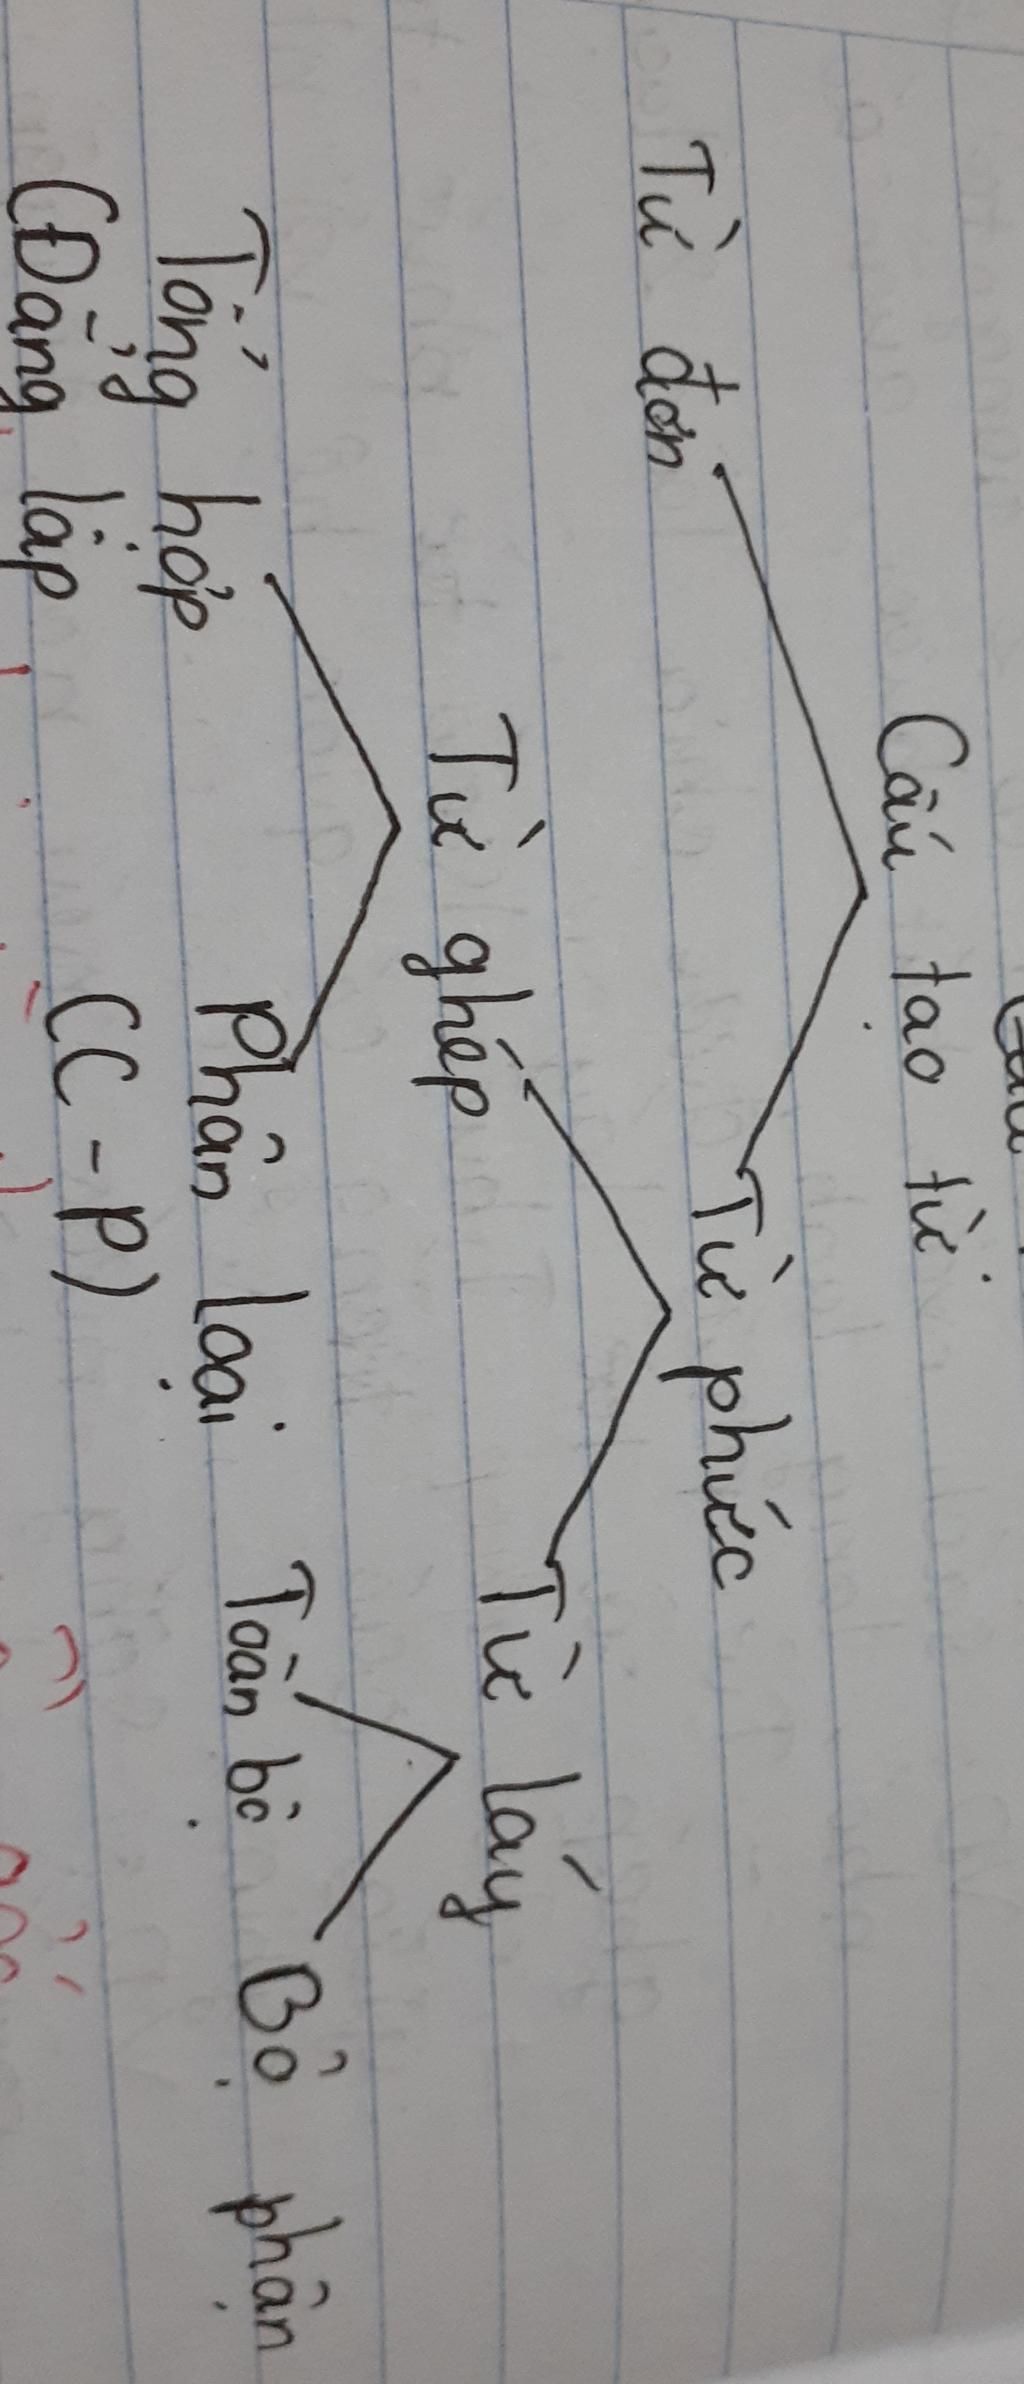 Cấu tạo từ
Từ đơn Từ phức
Từ ghép Từ láy
Tổng hợp Phân loại Toàn bộ Bộ phận
(Đẳng lập (C-P)